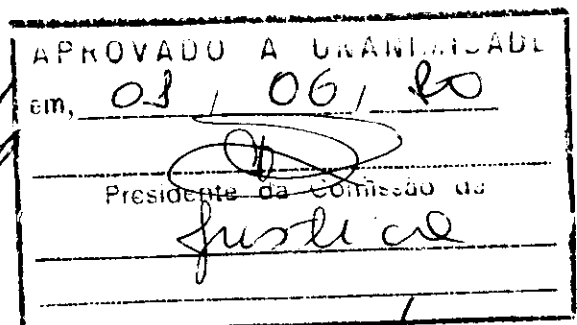 APROVADO A UNANIMIDADE
em, 01 / 06 /
Presidente da Comissão de
Justiça